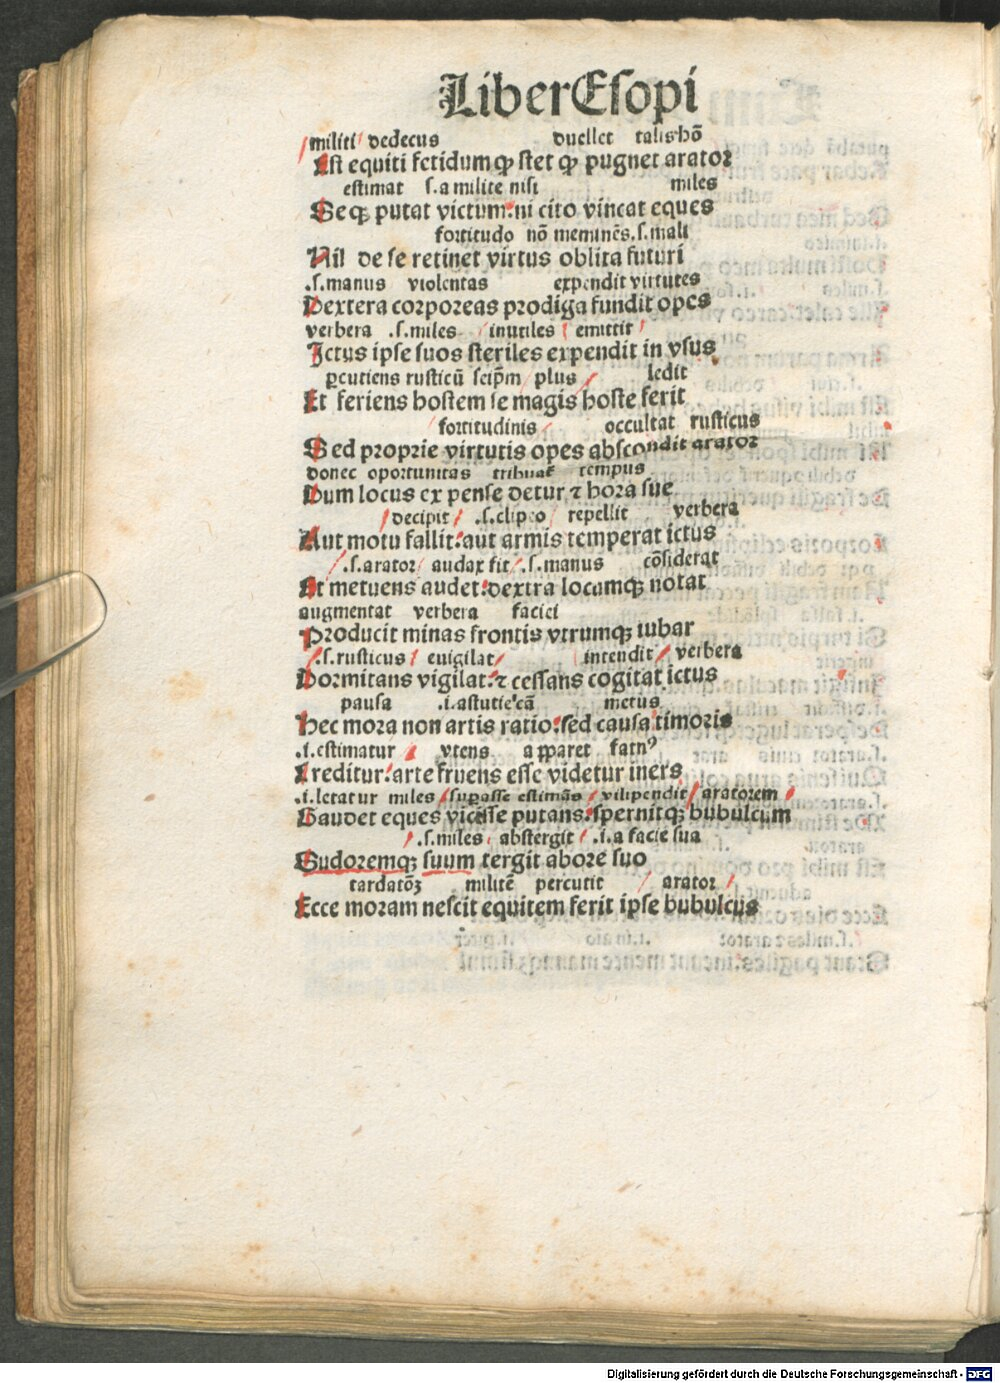 Liber Esopi
militi dedecus duellet talis hō
Est equiti fetidum ꝙ stet ꝙ pugnet arator
estimat .s. a milite nisi miles
Seqꝫ putat victum: ni cito vincat eques
fortitudo nō meminēs .s. mali
Nil de se retinet virtus oblita futuri
.s. manus violentas expendit virtutes
Dextera corporeas prodiga fundit opes
verbera .s. miles inutiles emittit
Ictus ipse suos steriles expendit in vsus
ꝑcutiens rusticū seip̄m plus ledit
Et feriens hostem se magis hoste ferit
fortitudinis occultat rusticus
Sed proprie virtutis opes abscondit arator
donec oportunitas tribuat tempus
Dum locus ex pense detur ⁊ hora sue
decipit .s. clipeo repellit verbera
Aut motu fallit: aut armis temperat ictus
.s. arator audax fit .s. manus cōsiderat
Et metuens audet: dextra locumqꝫ notat
augmentat verbera faciei
Producit minas frontis vtrumqꝫ iubar
.s. rusticus euigilat intendit verbera
Dormitans vigilat: ⁊ cessans cogitat ictus
pausa .i. astutie cā metus
Hec mora non artis ratio: sed causa timoris
.i. estimatur vtens apparet fatuꝰ
Creditur: arte fruens esse videtur iners
.i. letatur miles suꝑasse estimās vilipendit aratorem
Gaudet eques vicisse putans: spernitqꝫ bubulcum
.s. miles abstergit .i. a facie sua
Sudoremqꝫ suum tergit abore suo
tardatōꝫ militē percutit arator
Ecce moram nescit equitem ferit ipse bubulcus
Digitalisierung gefördert durch die Deutsche Forschungsgemeinschaft - DFG